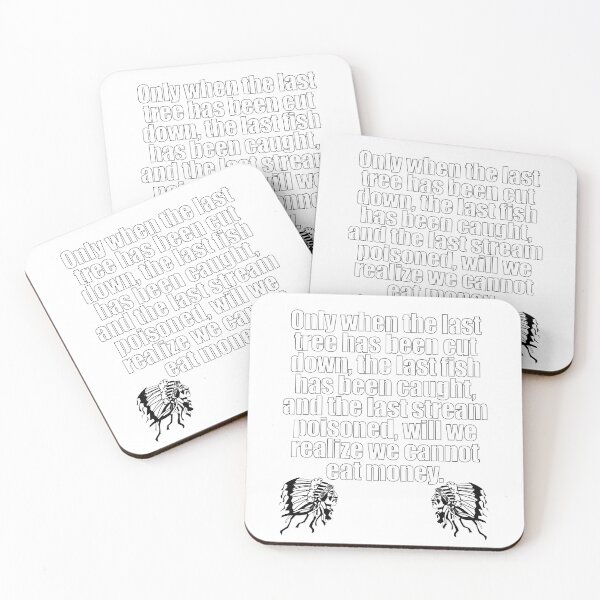 Only when the last
tree has been cut
down, the last fish
has been caught,
and the last
Only when the last
tree has been cut
down, the last fish
has been caught,
and the last stream
poisoned, will we
realize we cannot
eat money
Only when the last
tree has been cut
down, the last fish
has been caught,
and the last stream
poisoned, will we
realize we
eat money
Only when the last
tree has been cut
down, the last fish
has been caught,
and the last stream
poisoned, will we
realize we cannot
eat money.